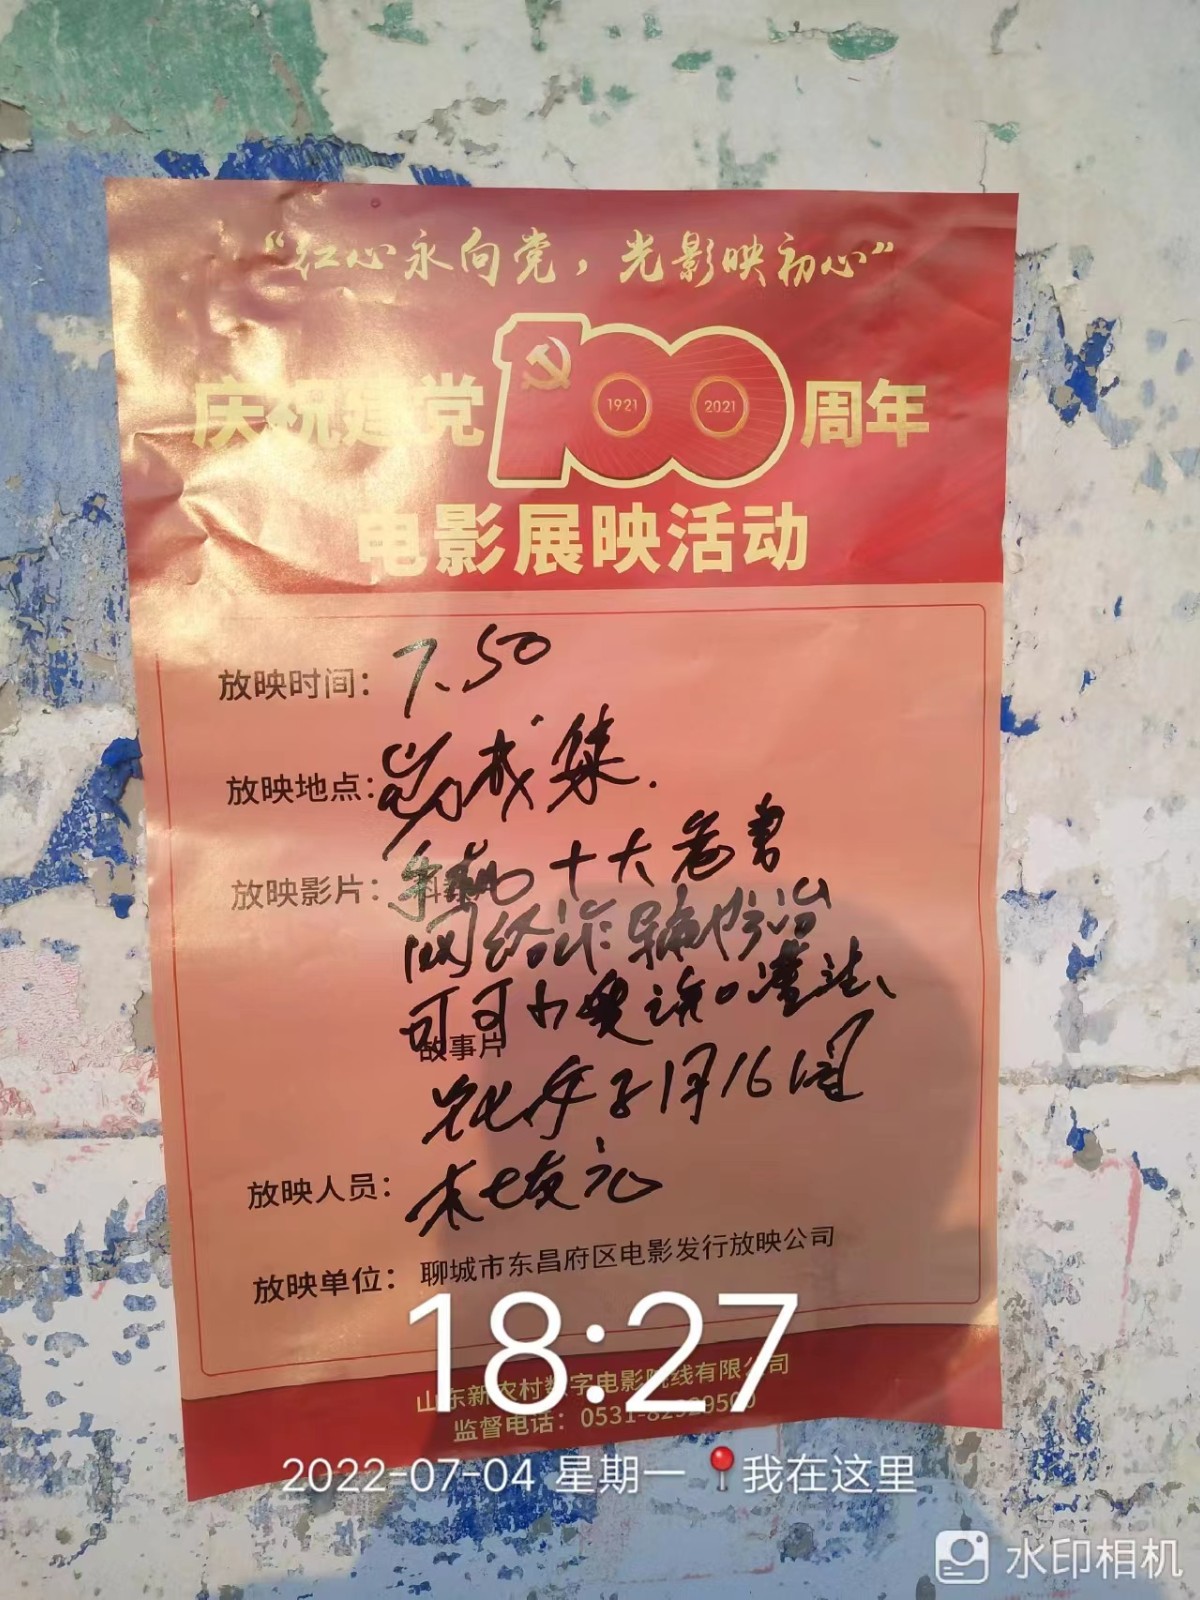 “红心永向党，光影映初心”
庆祝建党100周年
1921 2021
电影展映活动
放映时间：7.50
放映地点：集.
放映影片：科教片 手机十大危害
网络诈骗防治
可可
故事片
16
放映人员：
放映单位：聊城市东昌府区电影发行放映公司
18:27
山东新农村数字电影院线有限公司
监督电话：0531-82929500
2022-07-04 星期一 我在这里
水印相机